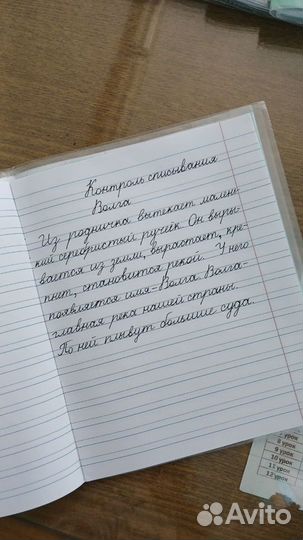 Контроль списывания
Волга
Из родничка вытекает малень-
кий серебристый ручеёк. Он выры-
вается из земли, вырастает, кре-
пнет, становится рекой. У него
появляется имя-Волга. Волга-
главная река нашей страны.
По ней плывут большие суда.
урок
8 урок
9 урок
10 урок
11 урок
12 урок
Avito